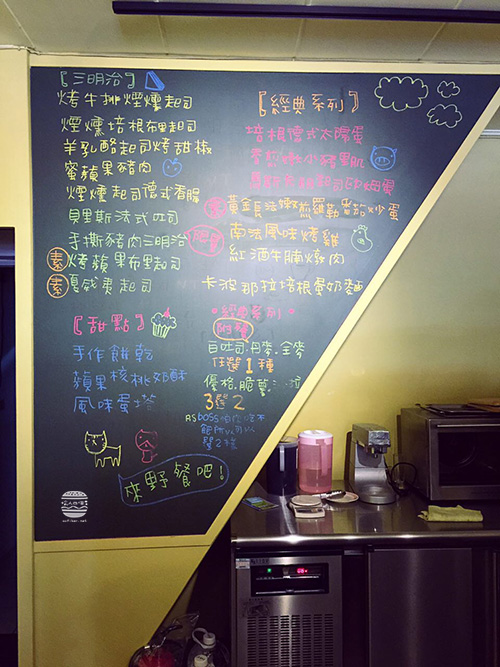 〖三明治〗
烤牛排煙燻起司
煙燻培根布里起司
羊乳酪起司烤甜椒
蜜蘋果豬肉
煙燻起司德式香腸
貝里斯法式吐司
手撕豬肉三明治
素 烤蘋果布里起司
素 夏威夷起司
〖甜點〗
手作餅乾
蘋果核桃奶酥
風味蛋塔
〖經典系列〗
培根德式太陽蛋
香煎嫩小豬里肌
素 黃金長法嫩煎羅勒番茄炒蛋
南法風味烤雞
紅酒牛腩燉肉
卡波那拉培根蛋奶麵
•經典系列•
附餐
白吐司.丹麥.全麥
任選1種
優格.脆薯.沙拉
3選2
來野餐吧!